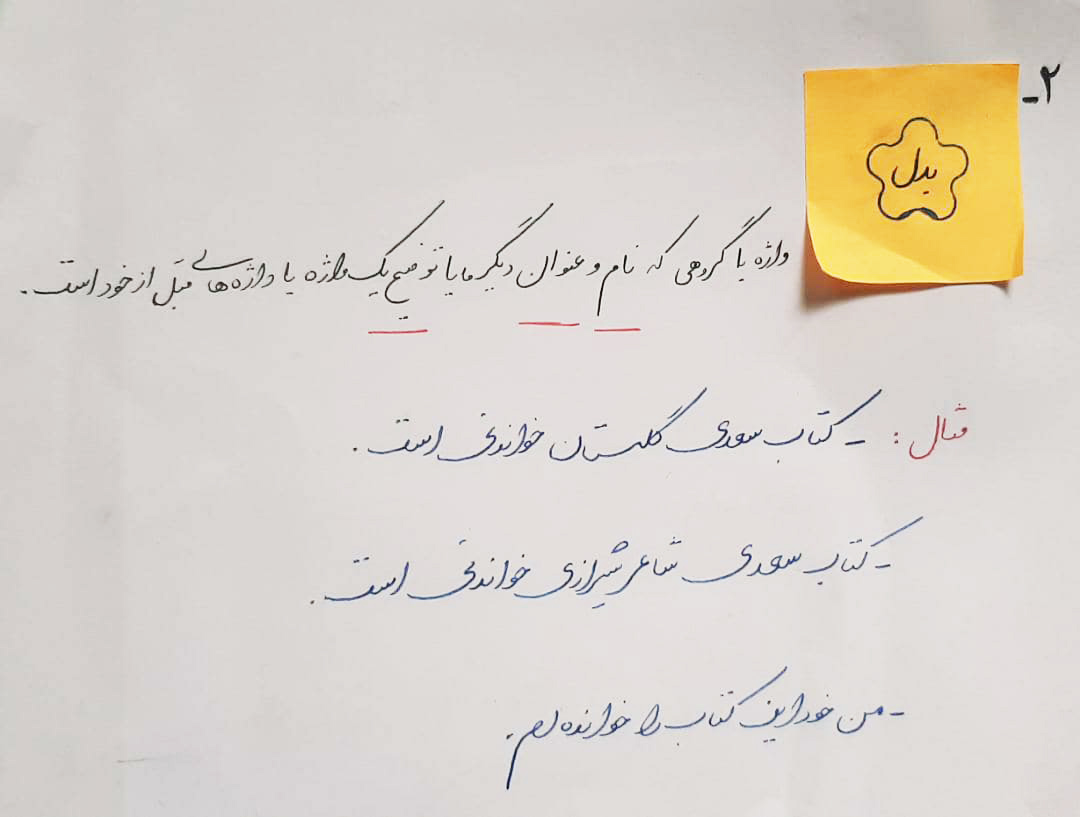 ۲-
بدل
واژه یا گروهی که نام و عنوان دیگر ما یا توضیح یک واژه یا واژه‌هایی قبل از خود است.
مثال : - کتاب سعدی گلستان خواندنی است .
- کتاب سعدی شاعر شیرازی خواندنی است .
- من خود این کتاب را خوانده‌ام .